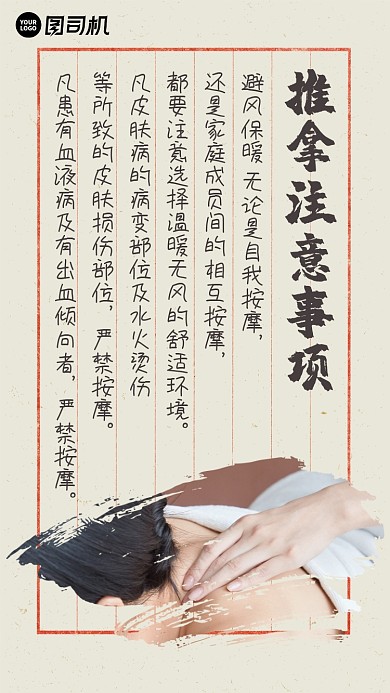 YOUR
LOGO
图司机
推拿注意事项
避风保暖 无论是自我按摩，
还是家庭成员间的相互按摩，
都要注意选择温暖无风的舒适环境。
凡皮肤病的病变部位及水火烫伤
等所致的皮肤损伤部位，严禁按摩。
凡患有血液病及有出血倾向者，严禁按摩。